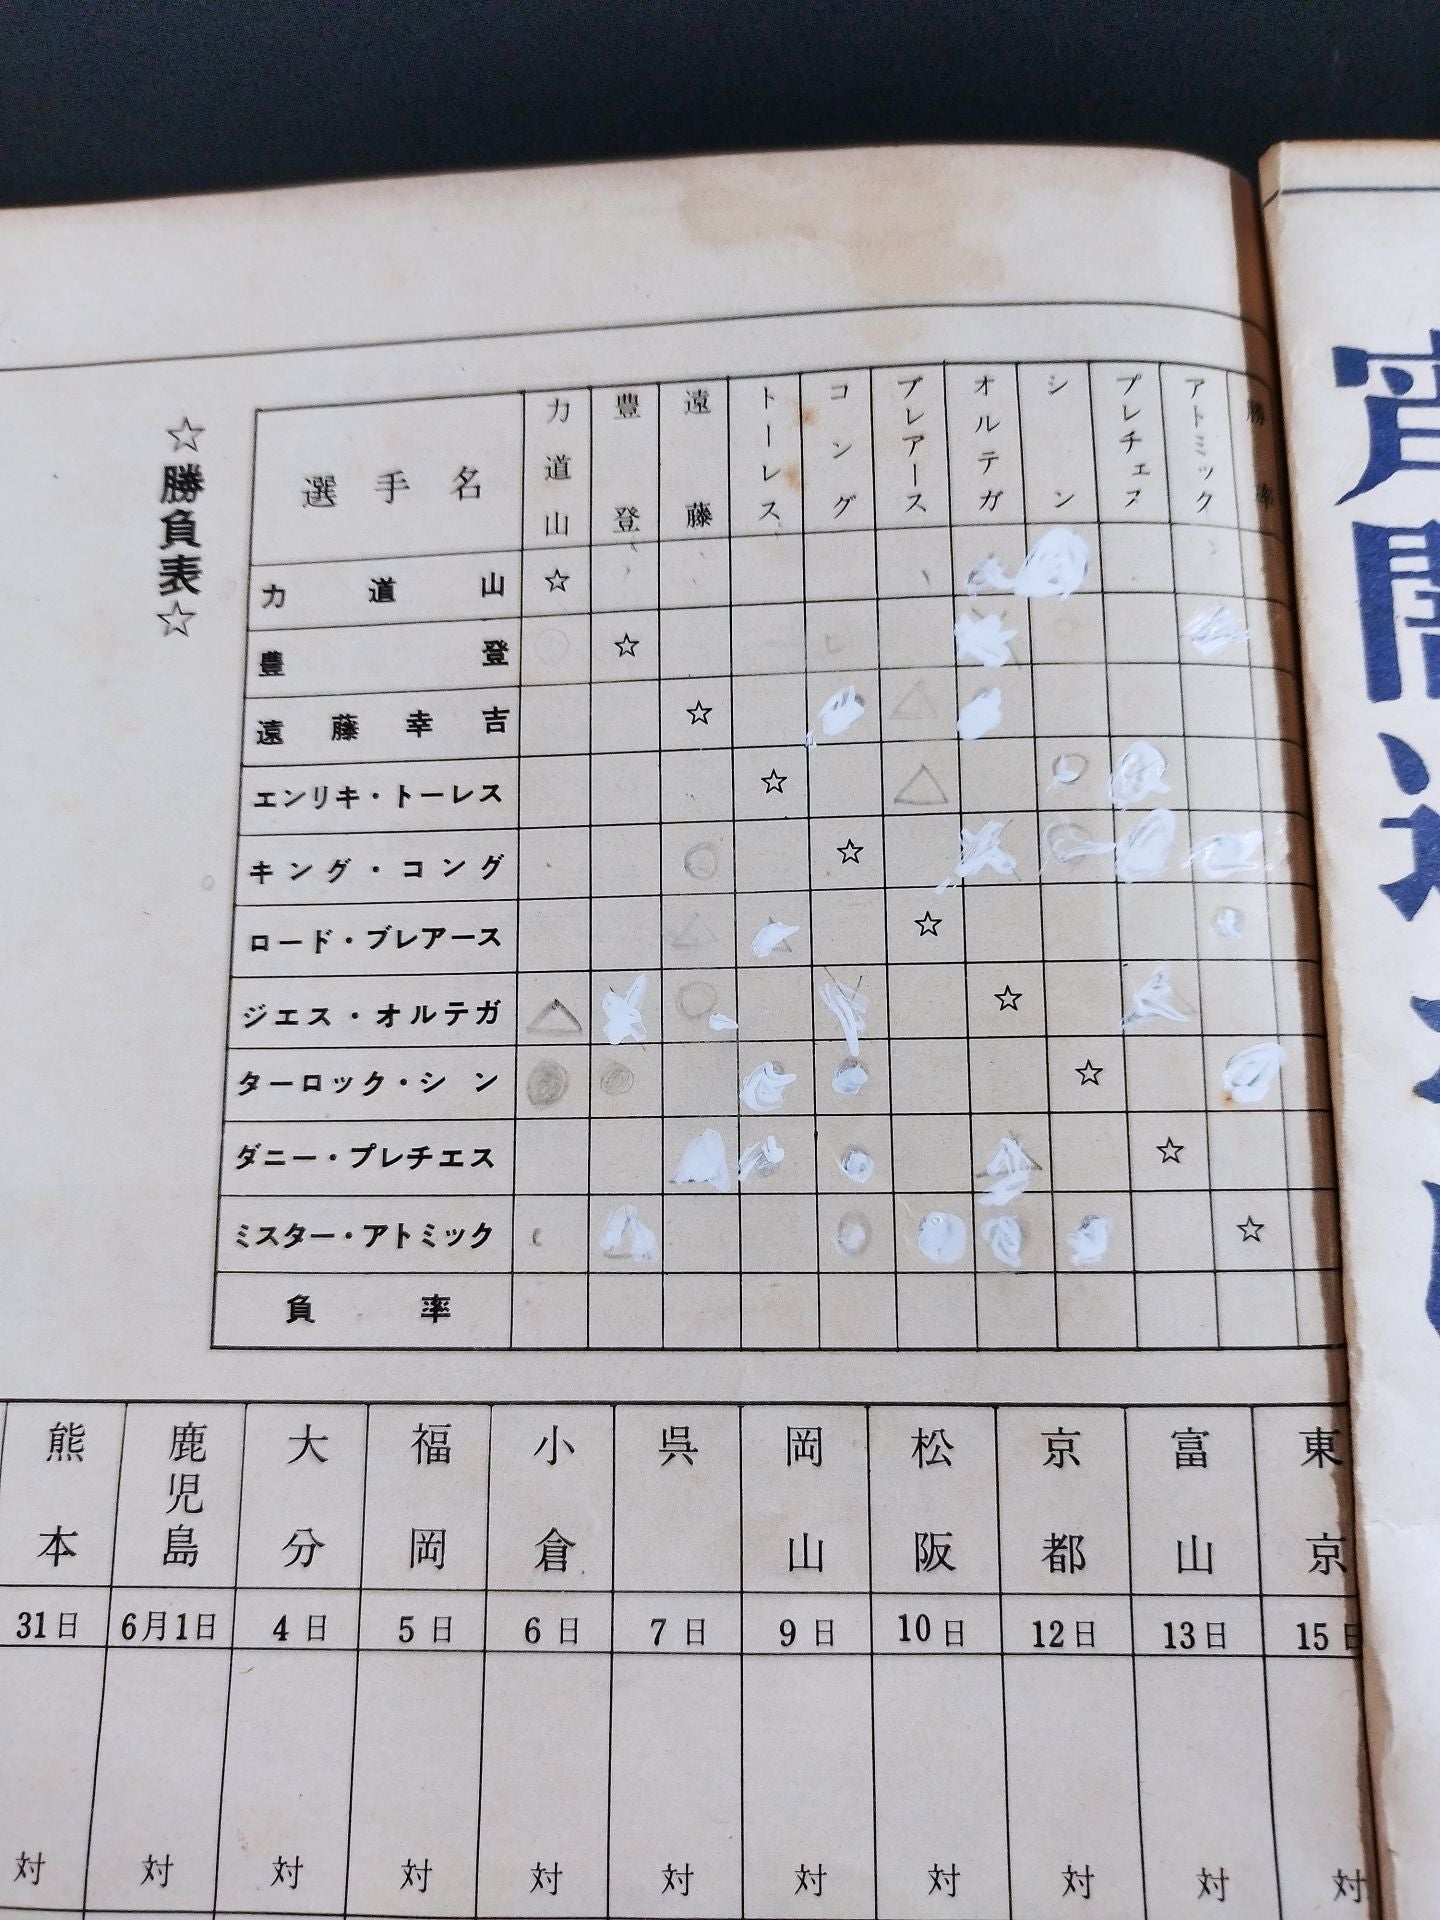 ☆勝負表☆
選手名 力道山 豊登 遠藤 トーレス コング ブレアース オルテガ シン プレチェフ アトミック 勝率
力道山 ☆
豊登 ☆
遠藤幸吉 ☆
エンリキ・トーレス ☆
キング・コング ☆
ロード・ブレアース ☆
ジェス・オルテガ ☆
ターロック・シン ☆
ダニー・プレチエス ☆
ミスター・アトミック ☆
負率
熊本 鹿児島 大分 福岡 小倉 呉 岡山 松阪 京都 富山 東京
31日 6月1日 4日 5日 6日 7日 9日 10日 12日 13日 15日
対 対 対 対 対 対 対 対 対 対 対